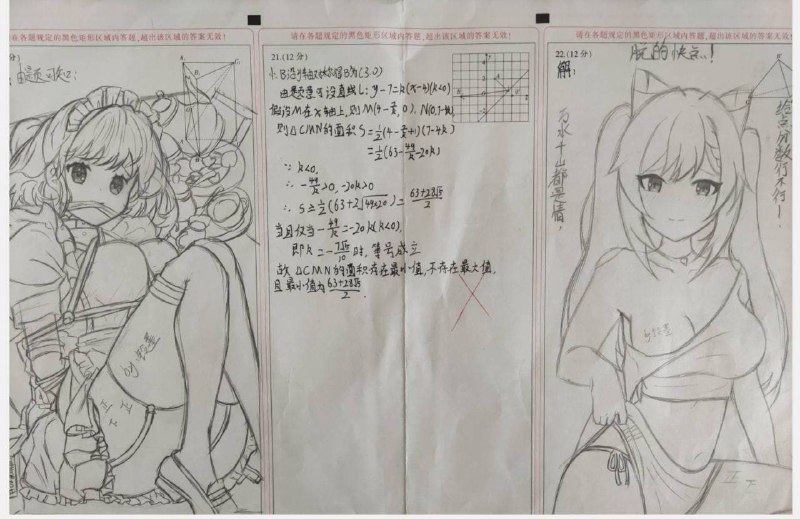 请在各题规定的黑色矩形区域内答题,超出该区域的答案无效!
由题意可知2:
by铃星
正
正
下
请在各题规定的黑色矩形区域内答题,超出该区域的答案无效!
21.(12分)
(3.0)
由题意可设直线L:y-7=k(x-4)(k<0)
假设M在x轴上,则M(4-7/k,0),N(0,7-4k)
则△CMN的面积S=1/2(4-7/k+1)(7-4k)
=1/2(63-49/k-20k)
∵k<0,
∴-49/k>0,-20k>0
∴S≥1/2(63+2√49×20)=63+28√5/2
当且仅当-49/k=-20k(k<0),
即k=-7√5/10时,等号成立
故△CMN的面积存在最小值,不存在最大值,
且最小值为63+28√5/2.
请在各题规定的黑色矩形区域内答题,超出该区域的答案无效!
22.(12分)
玩的快点!
解:
万水千山都是情,
给点分数行不行!
by铃星
正
下